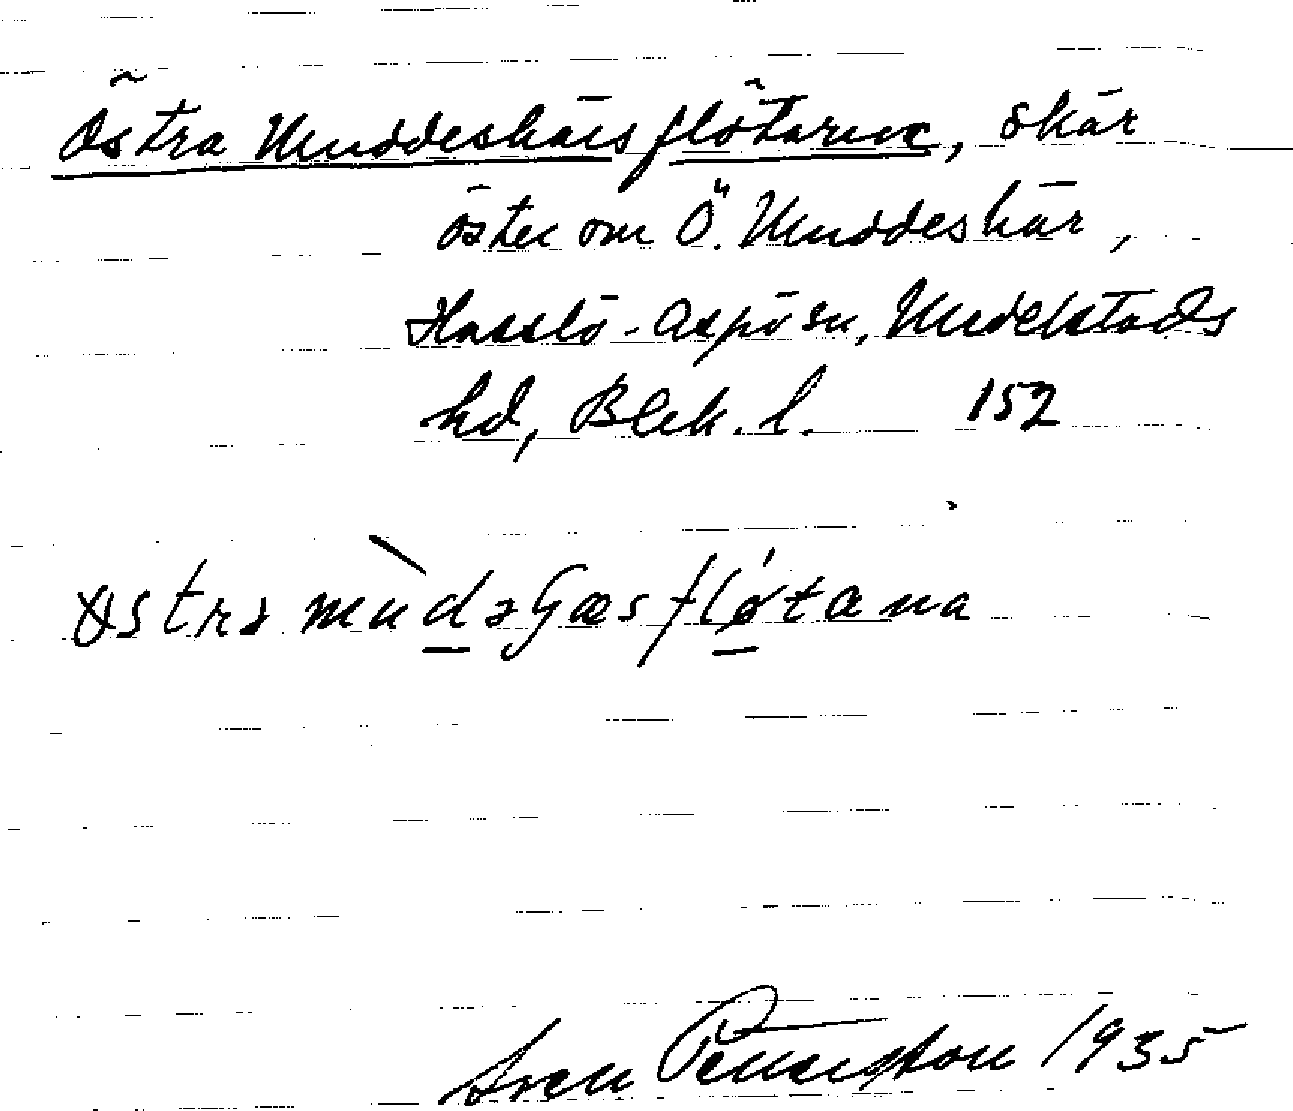 Östra Muddeskärsflötarne, skär
öster om Ö. Muddeskär,
Hasslö-Aspö sn, Medelstads
hd, Blek. l. 152
Sven Pettersson 1935